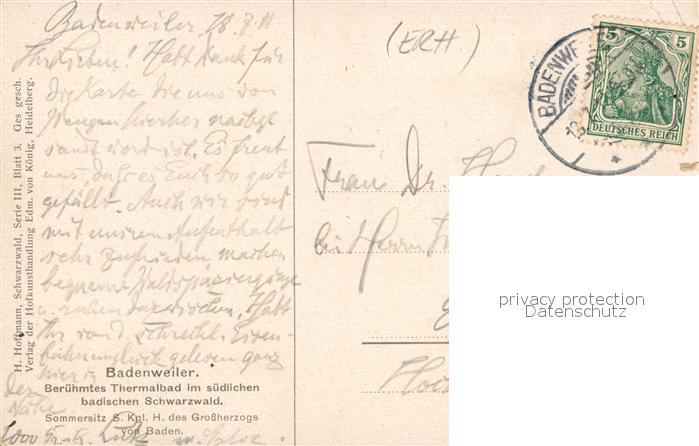 Badenweiler 18.7.11
Ihr Lieben! Habt Dank für
die Karte die uns von
hierher nachge
sandt worden ist. Es freut
uns, daß es Euch so gut
gefällt. Auch wir sind
mit unserm Aufenthalt
sehr zufrieden machen
bequeme Waldspaziergänge
u. ruhen dazwischen. Habt
Ihr von d. schreckl. Eisen-
bahnunglück gelesen ganz
hier in
der
Nähe.
1000
H. Hoffmann, Schwarzwald, Serie III, Blatt 3. Ges gesch.
Verlag der Hofkunsthandlung Edm. von König, Heidelberg.
Badenweiler.
Berühmtes Thermalbad im südlichen
badischen Schwarzwald.
Sommersitz S. Kgl. H. des Großherzogs
von Baden.
(ERH.)
BADENWE
5 5
DEUTSCHES REICH
Frau Dr.
bei Herrn
privacy protection
Datenschutz